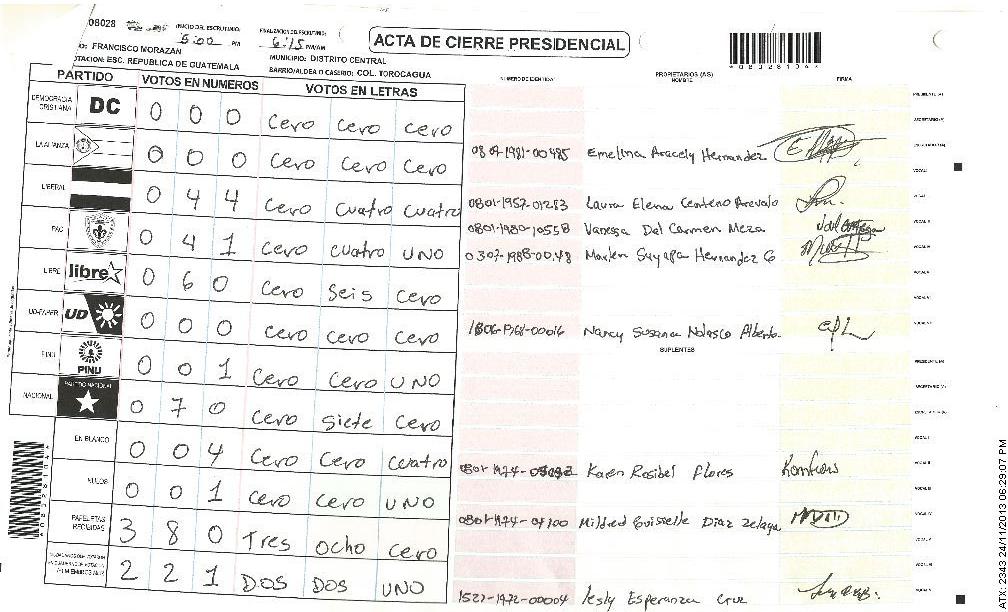 08028
INICIO DEL ESCRUTINIO: 5:00 PM
FINALIZACION DEL ESCRUTINIO: 6:15 PM/AM
ACTA DE CIERRE PRESIDENCIAL
FRANCISCO MORAZAN
MUNICIPIO: DISTRITO CENTRAL
ESC. REPUBLICA DE GUATEMALA
BARRIO/ALDEA O CASERIO: COL. TOROCAGUA
PARTIDO VOTOS EN NUMEROS VOTOS EN LETRAS
NUMERO DE IDENTIDAD PROPIETARIOS (AS) NOMBRE FIRMA
DEMOCRACIA CRISTIANA DC 0 0 0 Cero Cero Cero
LA ALIANZA 0 0 0 Cero Cero Cero
LIBERAL 0 4 4 Cero Cuatro Cuatro
PAC 0 4 1 Cero Cuatro UNO
LIBRE libre 0 6 0 Cero Seis Cero
UD-FAPER UD 0 0 0 Cero Cero Cero
PINU PINU 0 0 1 Cero Cero UNO
NACIONAL PARTIDO NACIONAL 0 7 0 Cero Siete Cero
EN BLANCO 0 0 4 Cero Cero Cuatro
NULOS 0 0 1 Cero Cero UNO
PAPELETAS RECIBIDAS 3 8 0 Tres Ocho Cero
2 2 1 DOS DOS UNO
Emelina Aracely Hernandez
0801-1957-01283 Laura Elena Centeno Arevalo
0801-1980-10558 Vanessa Del Carmen Meza
Marlen Suyapa Hernandez G
Nancy Susana Nolasco Alberto
SUPLENTES
Karen Rosibel Flores
Mildred Guisselle Diaz Zelaya
Lesly Esperanza Cruz
TX 2343 24/11/2013 06:29:07 PM